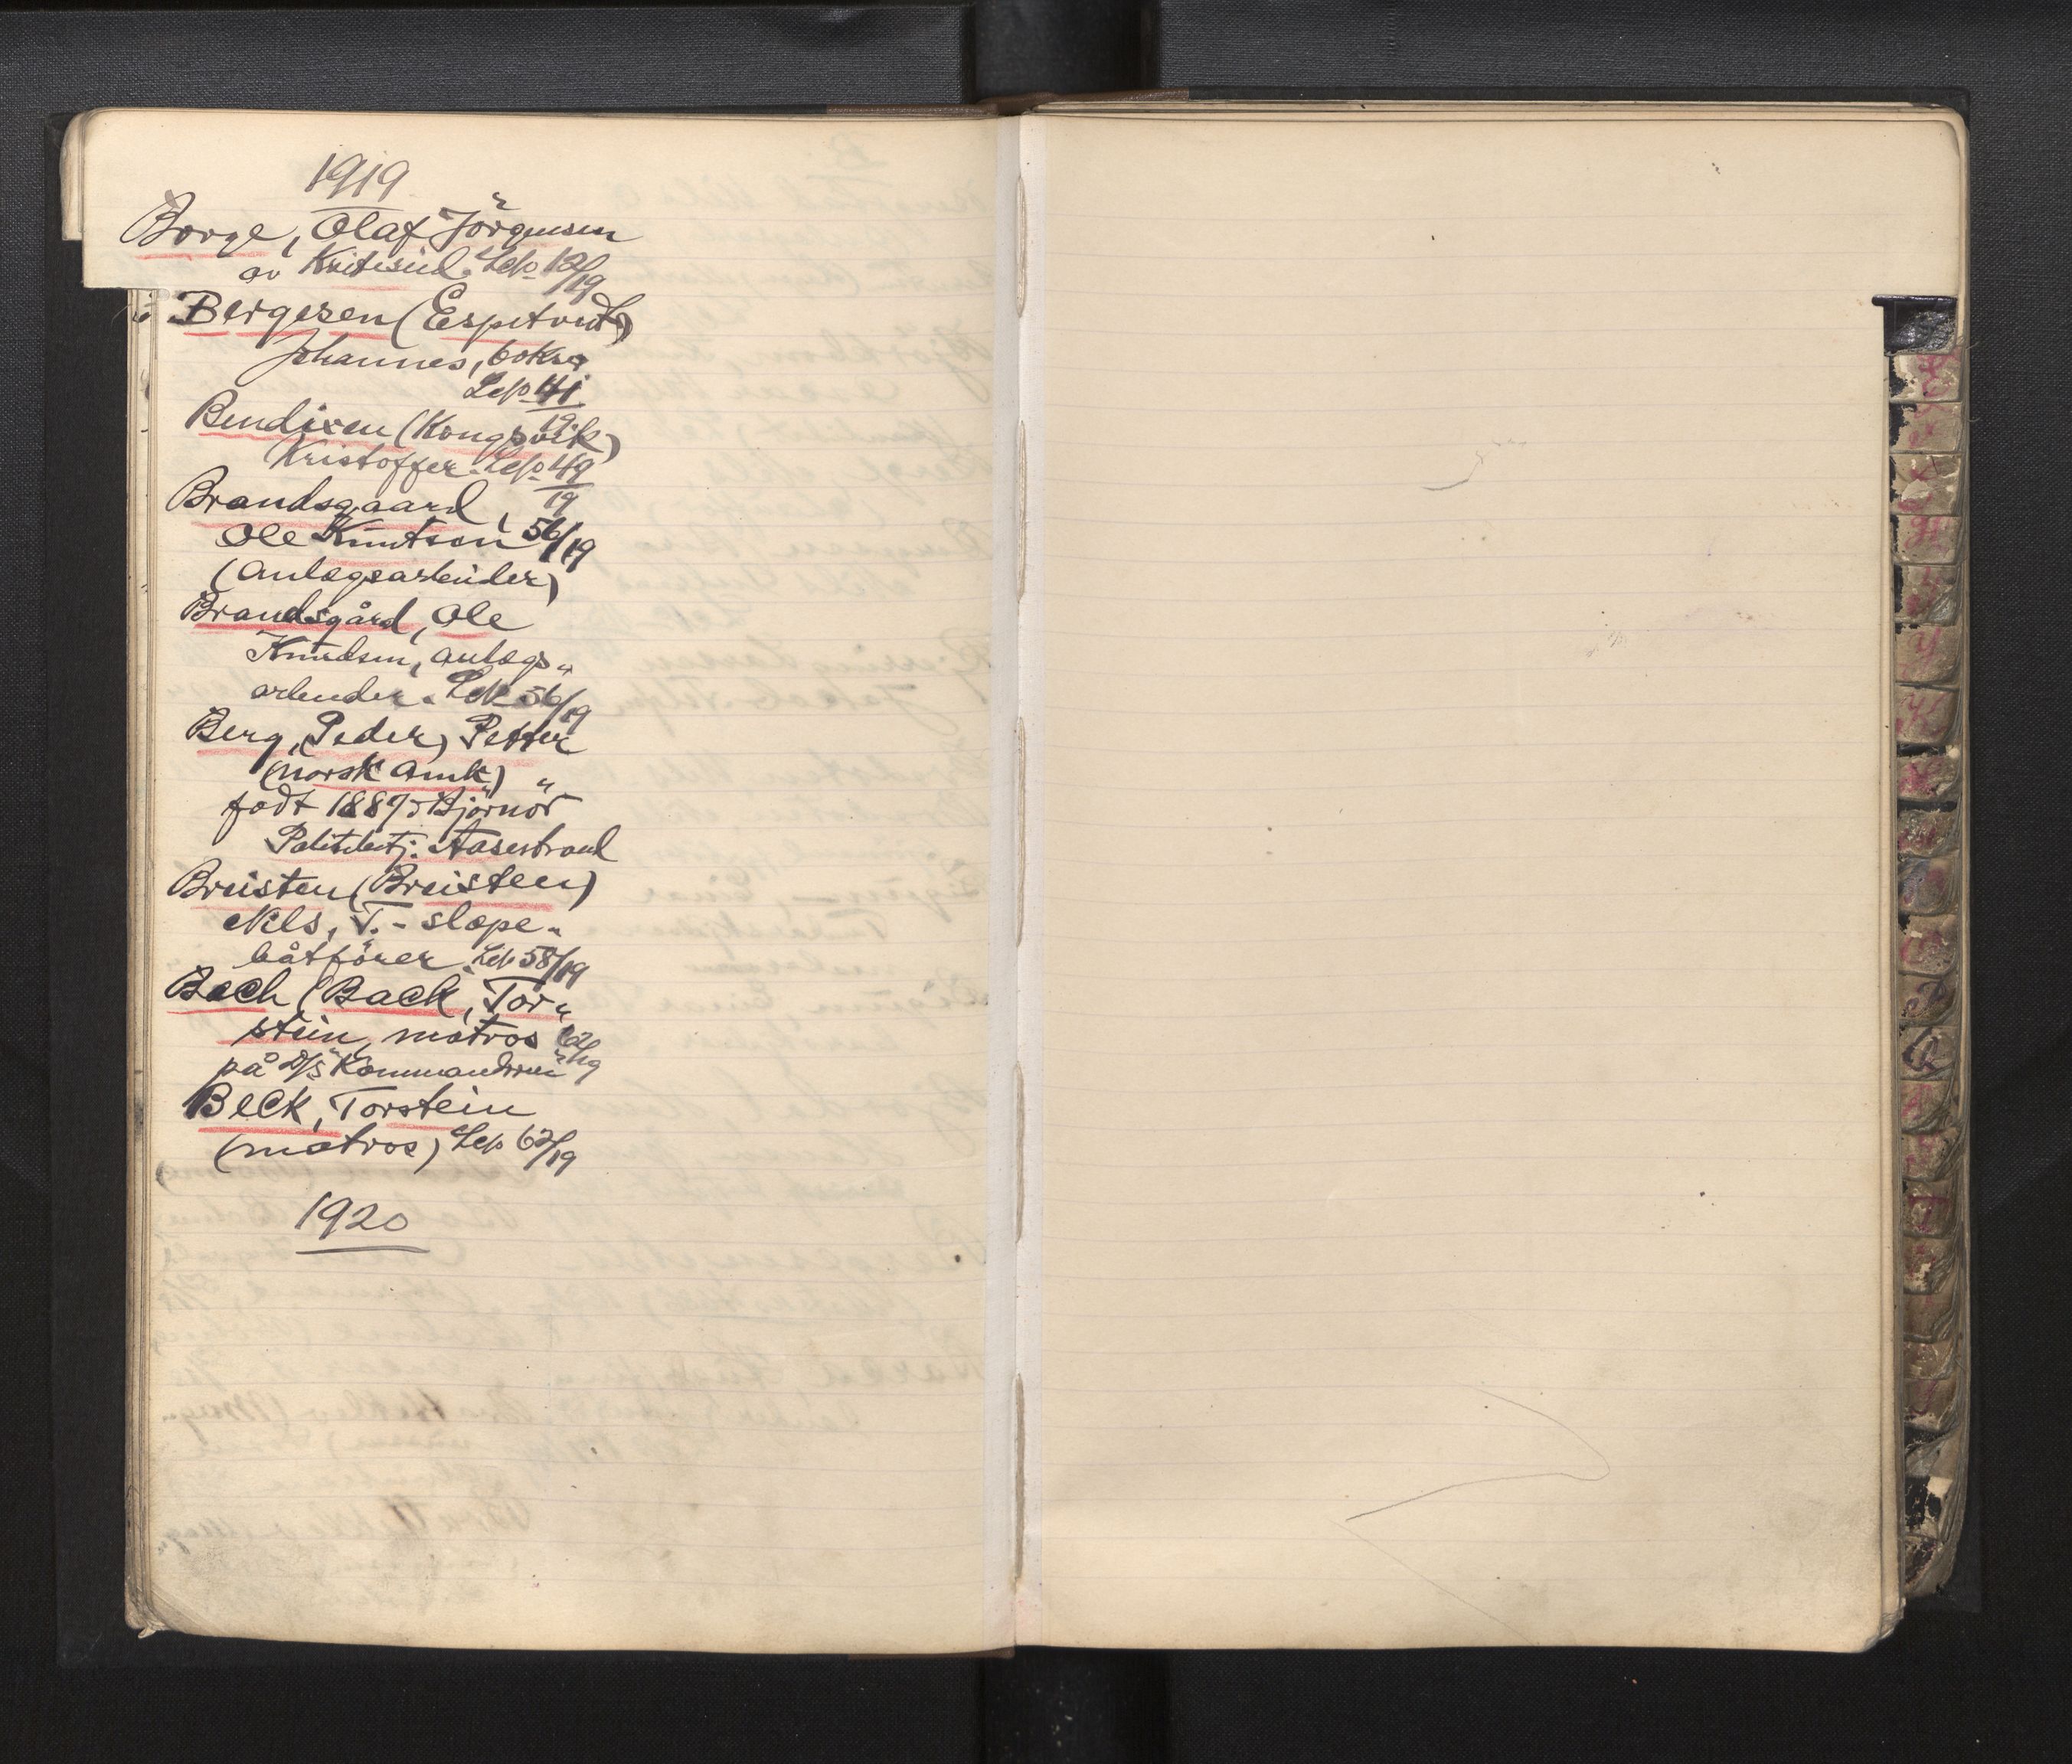 1919
Borge, Olaf Jörgensen
av Lep 12/19
Bergesen (Espetvedt)
Johannes,
Lep 41/19
Bendixen (Kongsvik)
Kristoffer. Lep 49/19
Brandsgaard,
Ole Knutson 56/19
(anlægsarbeider)
Brandsgård, Ole
Knudsen, anlægs„
arbeider. Lep 56/19
Berg, (Peder) Petter
(norsk amk)
født 1887 i Björnör
Aasestrand
Breisten (Breisteen)
Nils, T. - slæpe„
båtförer. Lep 58/19
Bach (Back, Tor„
stein, matros 62/19
på D/S "Kommandören"
Beck, Torstein
(matros) Lep 62/19
1920